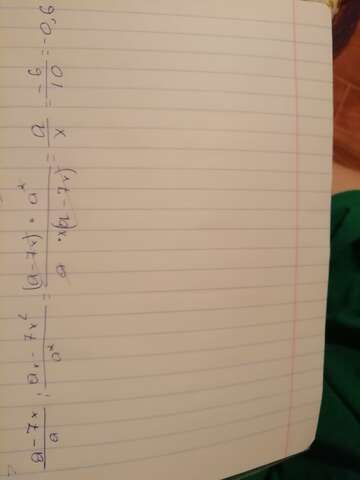 (a - 7x)/a : (ax - 7x²)/a² = ((a - 7x) · a²)/(a · x(a - 7x)) = a/x = -6/10 = -0,6